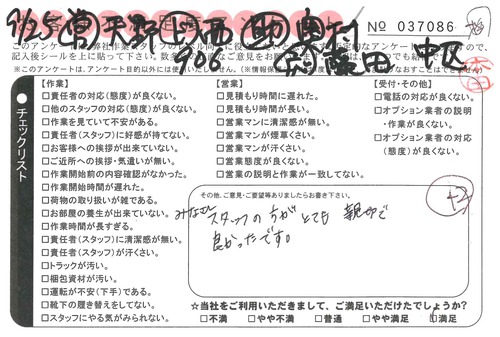 9/25
№ 037086
中区
記入後シールを上に貼って下さい。
※このアンケートは、アンケート目的以外には使用いたしません。
チェックリスト
【作業】
□責任者の対応(態度)が良くない。
□他のスタッフの対応(態度)が良くない。
□作業を見ていて不安がある。
□責任者(スタッフ)に好感が持てない。
□お客様への挨拶が出来ていない。
□ご近所への挨拶・気遣いが無い。
□作業開始前の内容確認がなかった。
□作業開始時間が遅れた。
□荷物の取り扱いが雑である。
□お部屋の養生が出来ていない。
□作業時間が長すぎる。
□責任者(スタッフ)に清潔感が無い。
□責任者(スタッフ)が汗くさい。
□トラックが汚い。
□梱包資材が汚い。
□運転が不安(下手)である。
□靴下の履き替えをしてない。
□スタッフにやる気がみられない。
【営業】
□見積もり時間に遅れた。
□見積もり時間が長い。
□営業マンに清潔感が無い。
□営業マンが煙草くさい。
□営業マンが汗くさい。
□営業態度が良くない。
□営業の説明と作業が一致してない。
【受付・その他】
□電話の対応が良くない。
□オプション業者の説明・作業が良くない。
□オプション業者の対応(態度)が良くない。
その他、ご意見・ご要望等ありましたらお書き下さい。
みなさん
スタッフの方がとても親切で
良かったです。
☆当社をご利用いただきまして、ご満足いただけたでしょうか?
□不満 □やや不満 □普通 □やや満足 □満足